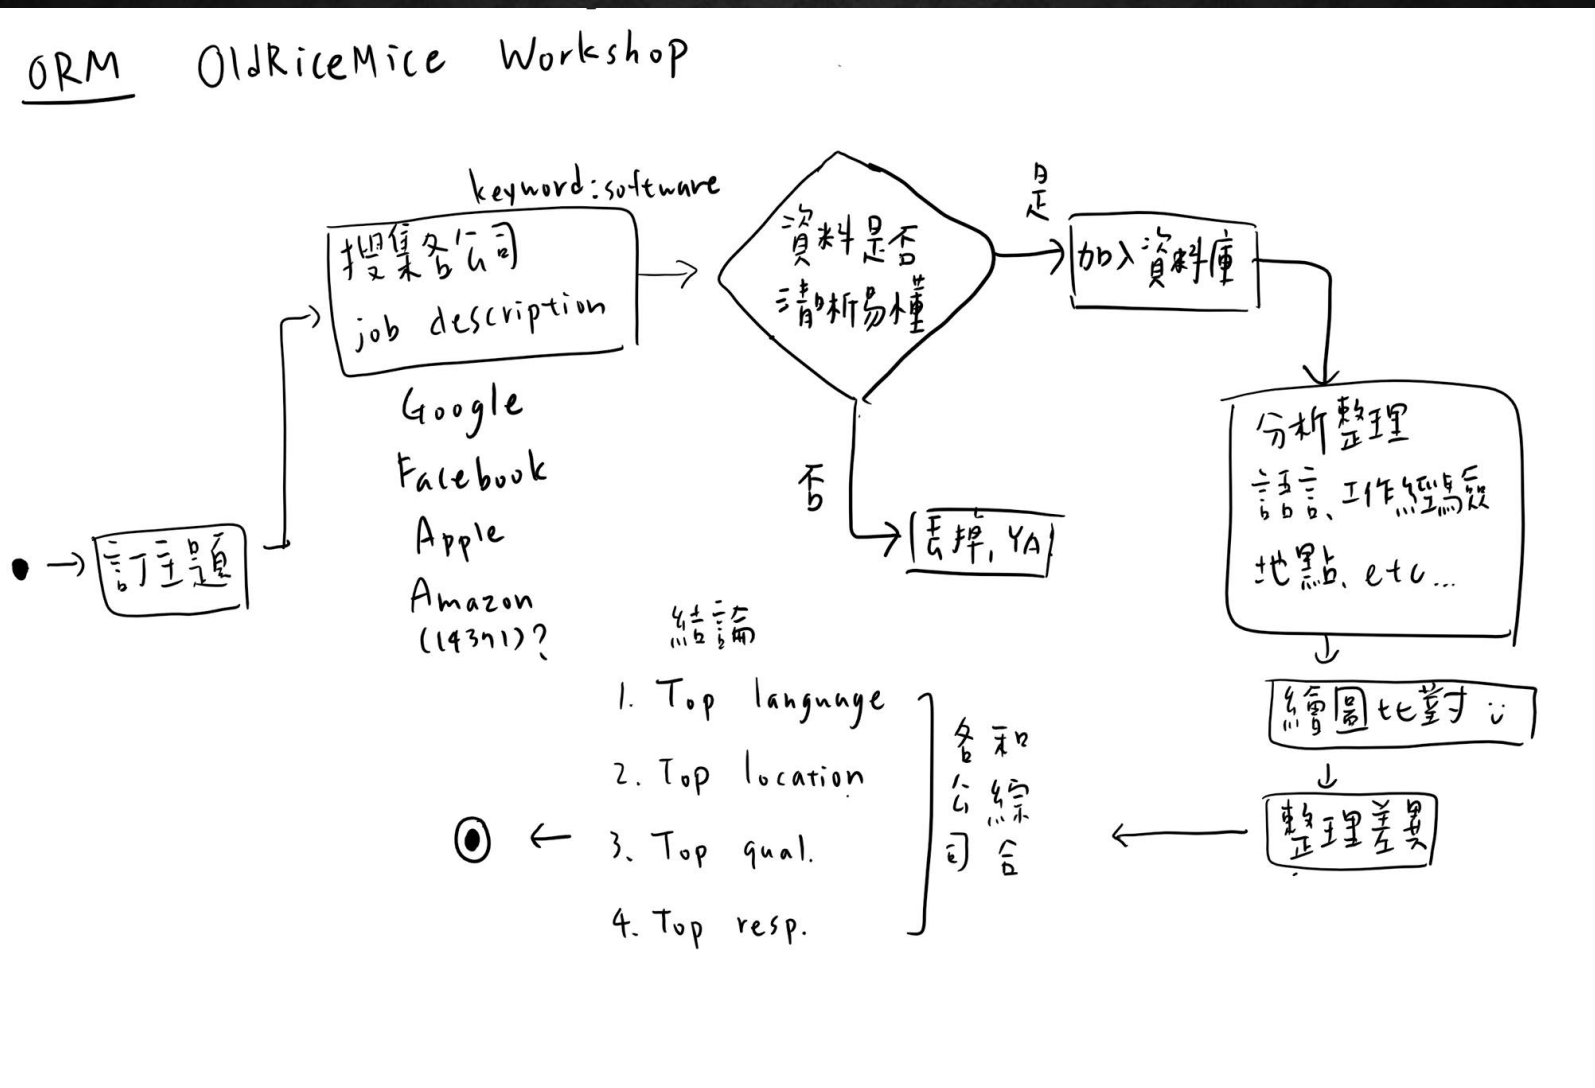 ORM OldRiceMice Workshop
keyword:software
搜集各公司
job description
Google
Facebook
Apple
Amazon
(14371)?
訂主題
資料是否
清晰易懂
是
否
加入資料庫
丟掉, YA
分析整理
語言、工作經驗
地點、etc...
繪圖比對
整理差異
結論
1. Top language
2. Top location
3、Top qual.
4、Top resp.
各公司
和綜合